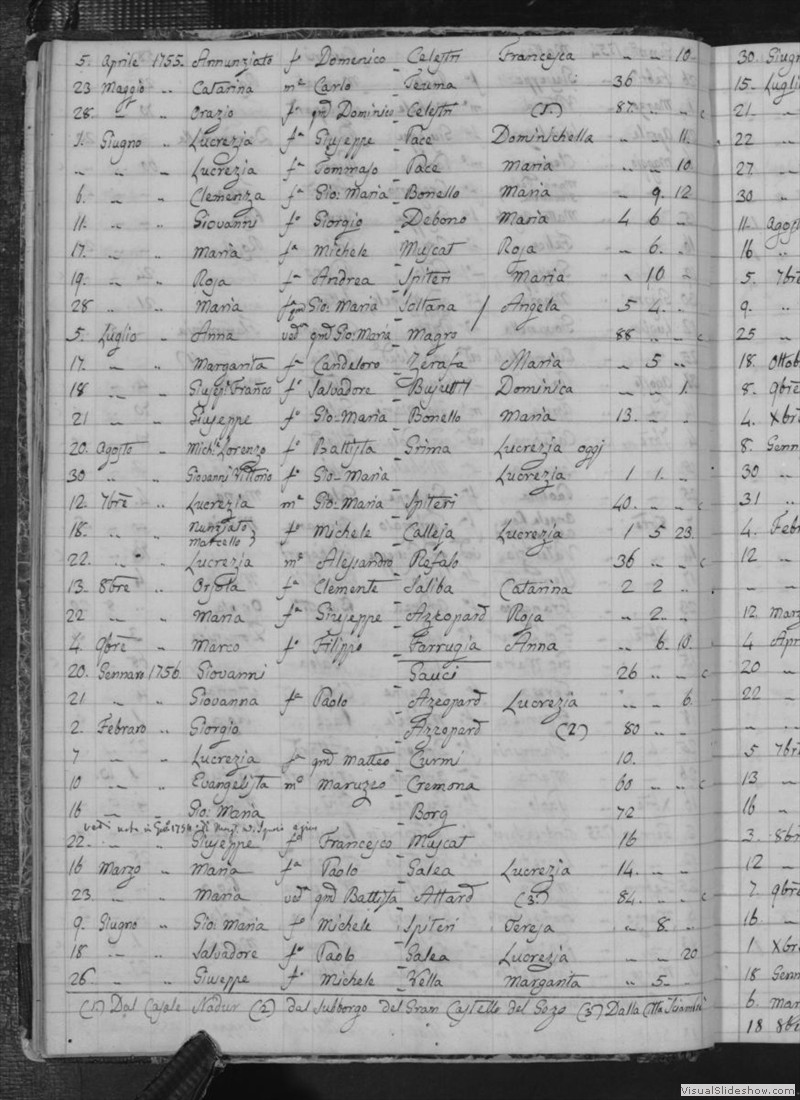 5. Aprile 1755. Annunziato fo Domenico Celestri Francesca " " 10
23 Maggio " Catarina me Carlo Teuma 36
28. " " Orazio fo qm Dominico Celestri (1) 87 " " c
1. Giugno " Lucrezia fa Giuseppe Pace Dominichella " " 11.
" " " Lucrezia fa Tommaso Pace Maria " " 10
6. " " Clemenza fa Gio: Maria Bonello Maria " 9. 12
11. " " Giovanni fo Giorgio Debono Maria 4 6 "
17. " " Maria fa Michele Muscat Rosa " 6. "
19. " " Rosa fa Andrea Spiteri Maria " 10 "
28 " " Maria fa qm Gio: Maria Soltana / Angela 5 4. "
5. Luglio " Anna veda qm Gio: Maria Magro 88 " " c
17. " " Margarita fa Candeloro Zerafa Maria " 5 "
18 " " Giusep: Franco fo Salvadore Busuttil Dominica " " 1.
21 " " Giuseppe fo Gio: Maria Bonello Maria 13. " "
20. Agosto " Mich: Lorenzo fo Battista Grima Lucrezia oggi
30 " " Giovanni Vittorio fo Gio: Maria Lucrezia 1 1. "
12. 7bre " Lucrezia me Gio: Maria Spiteri 40. " " c
18. " " Nunziato Marcello } fo Michele Calleja Lucrezia 1 5 23.
22. " " Lucrezia me Alessandro Refalo 36 " " c
13. 8bre " Orsola fa Clemente Saliba Catarina 2 2 "
22 " " Maria fa Giuseppe Azzopard Rosa " 2. "
4. 9bre " Marco fo Filippo Farrugia Anna " 6. 10.
20. Gennaro 1756. Giovanni Gauci 26 " " c
21 " " Giovanna fa Paolo Azzopard Lucrezia " " 6.
2. Febraro " Giorgio Azzopard (2) 80 " "
7 " " Lucrezia fa qm Matteo Curmi 10.
10 " " Evangelista mo Maruzzo Cremona 60 " " c
16 " " Gio: Maria Borg 72
vedi nota in
22. " " Giuseppe fo Francesco Muscat 16
16 Marzo " Maria fa Paolo Galea Lucrezia 14. " "
23. " " Maria veda qm Battista Attard (3) 84. " " c
9. Giugno " Gio: Maria fo Michele Spiteri Teresa " 8. "
18 " " Salvadore fo Paolo Galea Lucrezia " " 20
26. " " Giuseppe fo Michele Vella Margarita " 5 "
(1) Dal Casale Nadur (2) dal Subborgo del Gran Castello del Gozo (3) Dalla Città
30. Giugn
15. Lugli
21 "
22 "
27 "
30 "
11. Agost
16 "
5. 7bre
9. "
25 "
18. Ottob
8. 9bre
4. Xbre
8. Genn
30 "
31 "
4. Febr
12 "
" "
12. Marz
4 Apr
20 "
22 "
" "
5 7br
13 "
16 "
3. 8br
12 "
7. 9bre
16 "
1 Xbr
18 Genn
6. mar
18 8b
VisualSlideshow.com